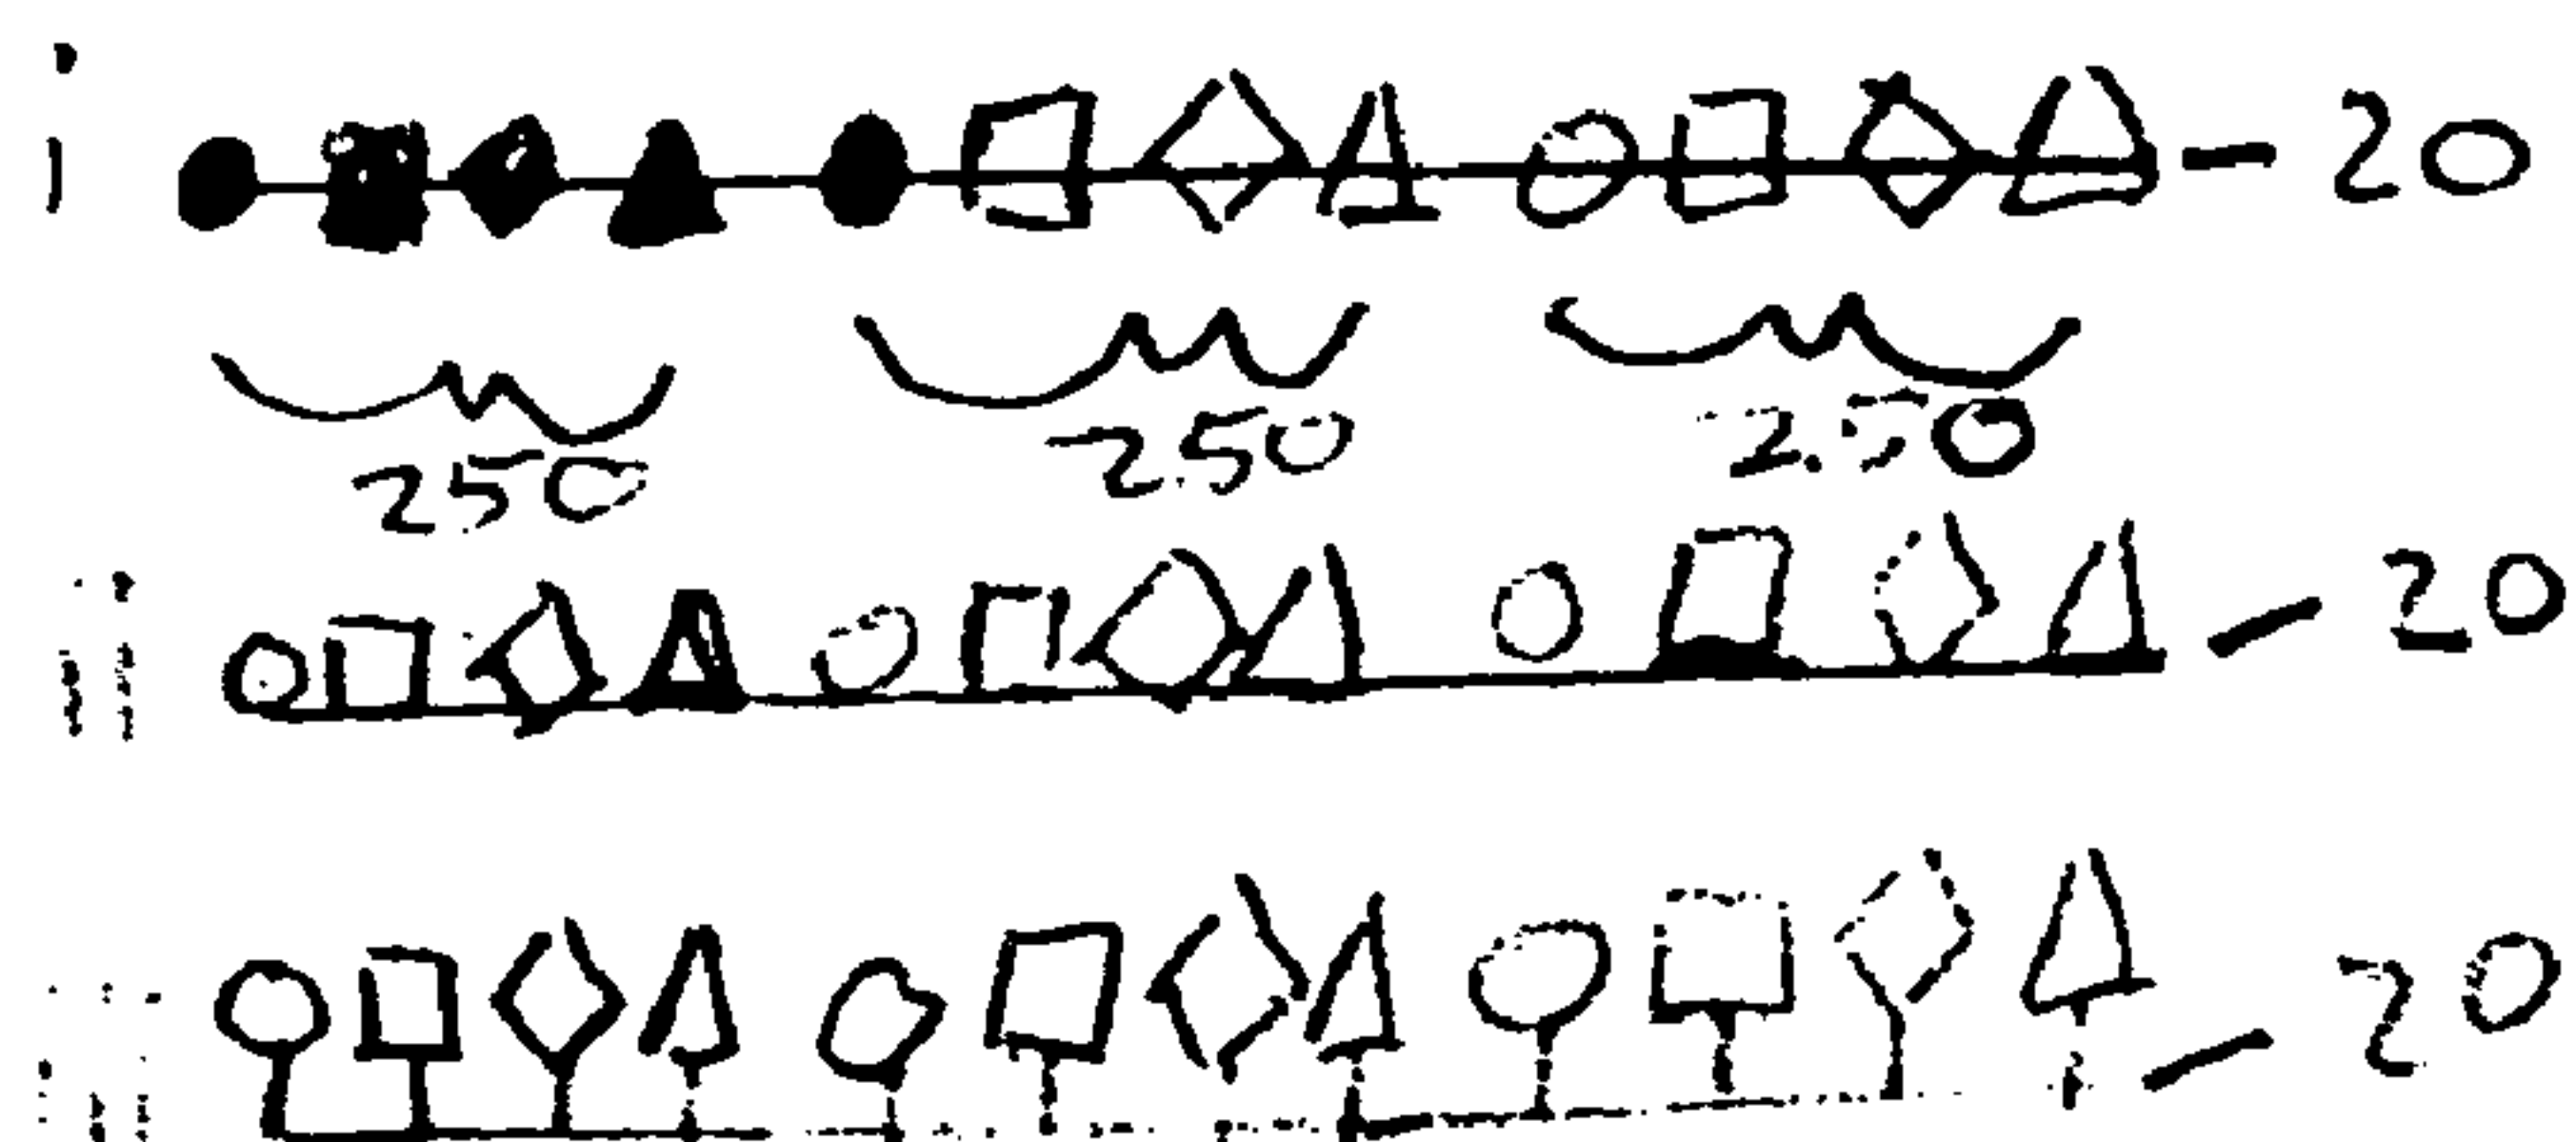 i - 20
250 2.50 2.50
ii - 20
iii - 20